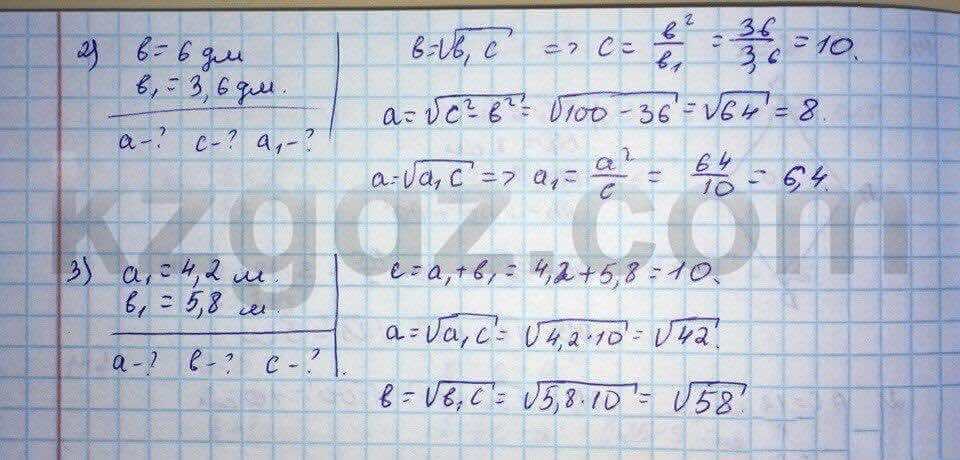 2) в = 6 дм
в₁ = 3,6 дм.
а - ? с - ? а₁ - ?
в = √в₁с => с = в²/в₁ = 36/3,6 = 10.
а = √с² - в² = √100 - 36 = √64 = 8.
а = √а₁с => а₁ = а²/с = 64/10 = 6,4.
kzgdz.com
3) а₁ = 4,2 м.
в₁ = 5,8 м.
а - ? в - ? с - ?
с = а₁ + в₁ = 4,2 + 5,8 = 10.
а = √а₁с = √4,2·10 = √42.
в = √в₁с = √5,8·10 = √58.